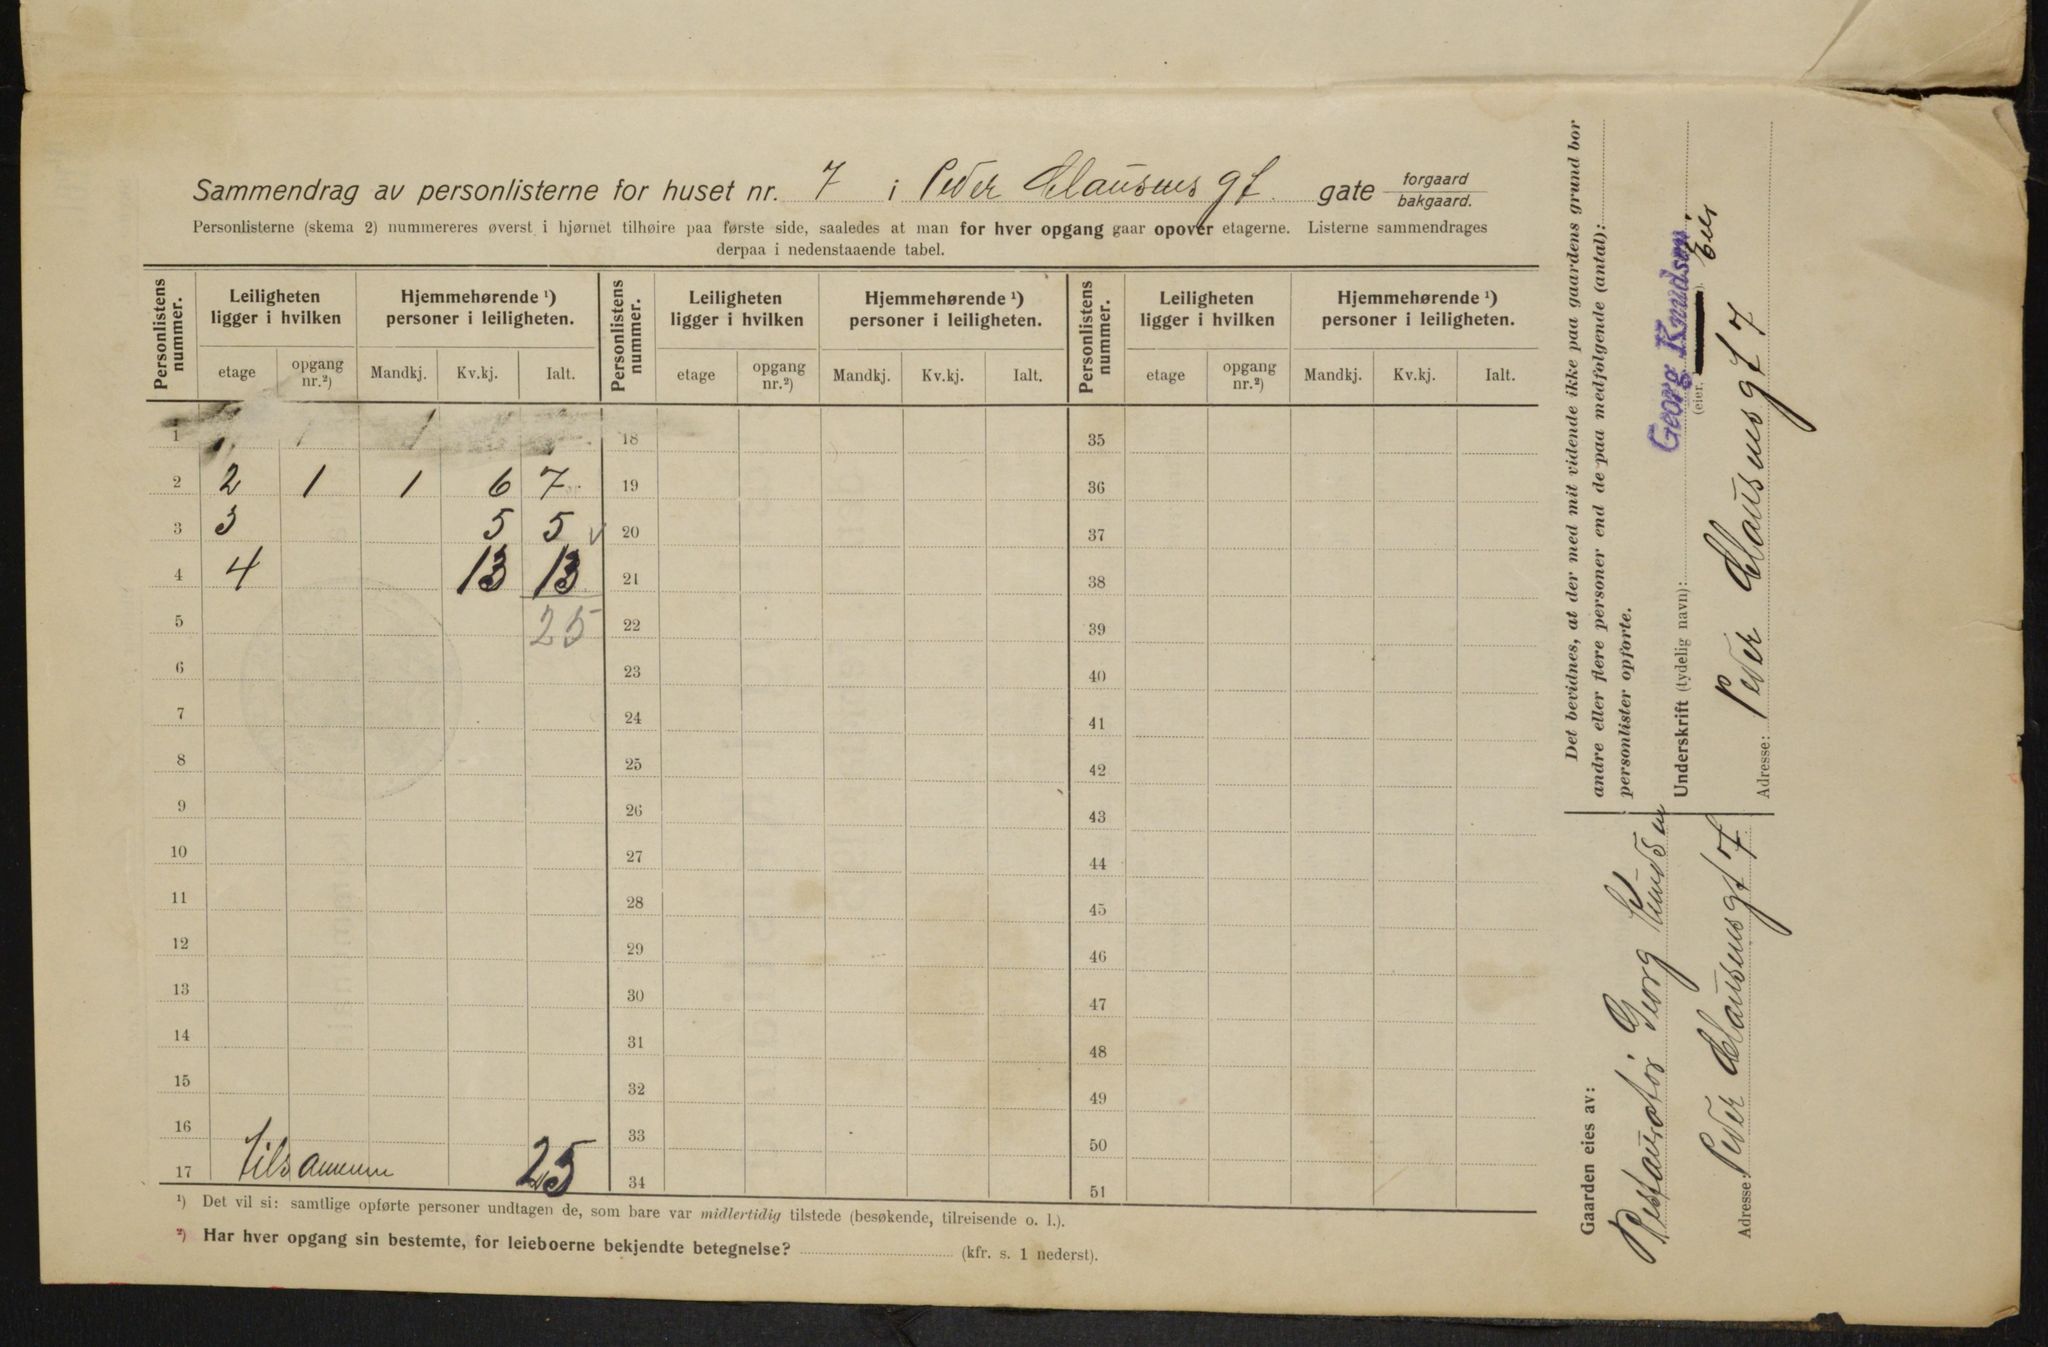 Sammendrag av personlisterne for huset nr. 7 i Peder Clausens gt. gate forgaard / bakgaard.
Personlisterne (skema 2) nummereres øverst i hjørnet tilhøire paa første side, saaledes at man for hver opgang gaar opover etagerne. Listerne sammendrages
derpaa i nedenstaaende tabel.
Personlistens nummer. Leiligheten ligger i hvilken Hjemmehørende ¹) personer i leiligheten. Personlistens nummer. Leiligheten ligger i hvilken Hjemmehørende ¹) personer i leiligheten. Personlistens nummer. Leiligheten ligger i hvilken Hjemmehørende ¹) personer i leiligheten.
etage opgang nr.²) Mandkj. Kv.kj. Ialt. etage opgang nr.²) Mandkj. Kv.kj. Ialt. etage opgang nr.²) Mandkj. Kv.kj. Ialt.
1 18 35
2 2 1 1 6 7 19 36
3 3 5 5 20 37
4 4 13 13 21 38
5 25 22 39
6 23 40
7 24 41
8 25 42
9 26 43
10 27 44
11 28 45
12 29 46
13 30 47
14 31 48
15 32 49
16 33 50
17 tilsammen 25 34 51
¹) Det vil si: samtlige opførte personer undtagen de, som bare var midlertidig tilstede (besøkende, tilreisende o. l.).
²) Har hver opgang sin bestemte, for leieboerne bekjendte betegnelse? (kfr. s. 1 nederst).
Det bevidnes, at der med mit vidende ikke paa gaardens grund bor
andre eller flere personer end de paa medfølgende (antal):
personlister opførte.
Georg Knudsen
Underskrift (tydelig navn):
(eier. Eier
Adresse: Peder Clausensgt 7
Gaarden eies av:
Restauratør Georg Knudsen
Adresse: Peder Clausensgt 7